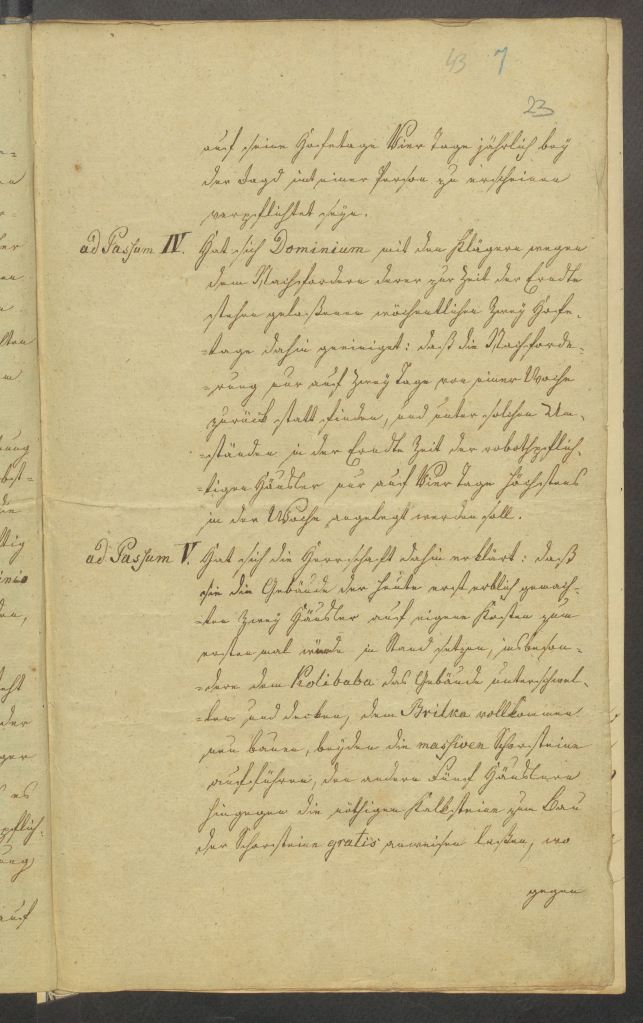 43 7
23
auf seine Hofetage Vier Tage jährlich bey
der Jagd mit einer Person zu erscheinen
verpflichtet seyn.
ad Passum IV. Hat sich Dominium mit den Klägern wegen
dem Nachfordern derer zur Zeit der Erndte
stehen gelaßenen wöchentlichen Zwey Hofe-
-tage dahin geeiniget: daß die Nachforde-
-rung nur auf Zwey Tage von einer Woche
zurück statt finden, und unter solchen Um-
-ständen in der Erndte Zeit der robothpflich-
-tigen Häusler nur auf Vier Tage höchstens
in der Woche angelegt werden soll.
ad Passum V. Hat sich die Herrschaft dahin erklärt: daß
sie die Gebäude der heute erst erblich gemach-
-ten Zwey Häusler auf eigene Kosten zum
ersten mal würde in Stand setzen, insbeson-
-dere dem Kolibaba das Gebäude unterschwel-
-len und decken, dem Brilka vollkommen
neu bauen, beyden die massiven Schorsteine
aufführen, den andern Fünf Häuslern
hingegen die nöthigen Kalksteine zum Bau
der Schorsteine gratis anweisen laßen, wo
gegen